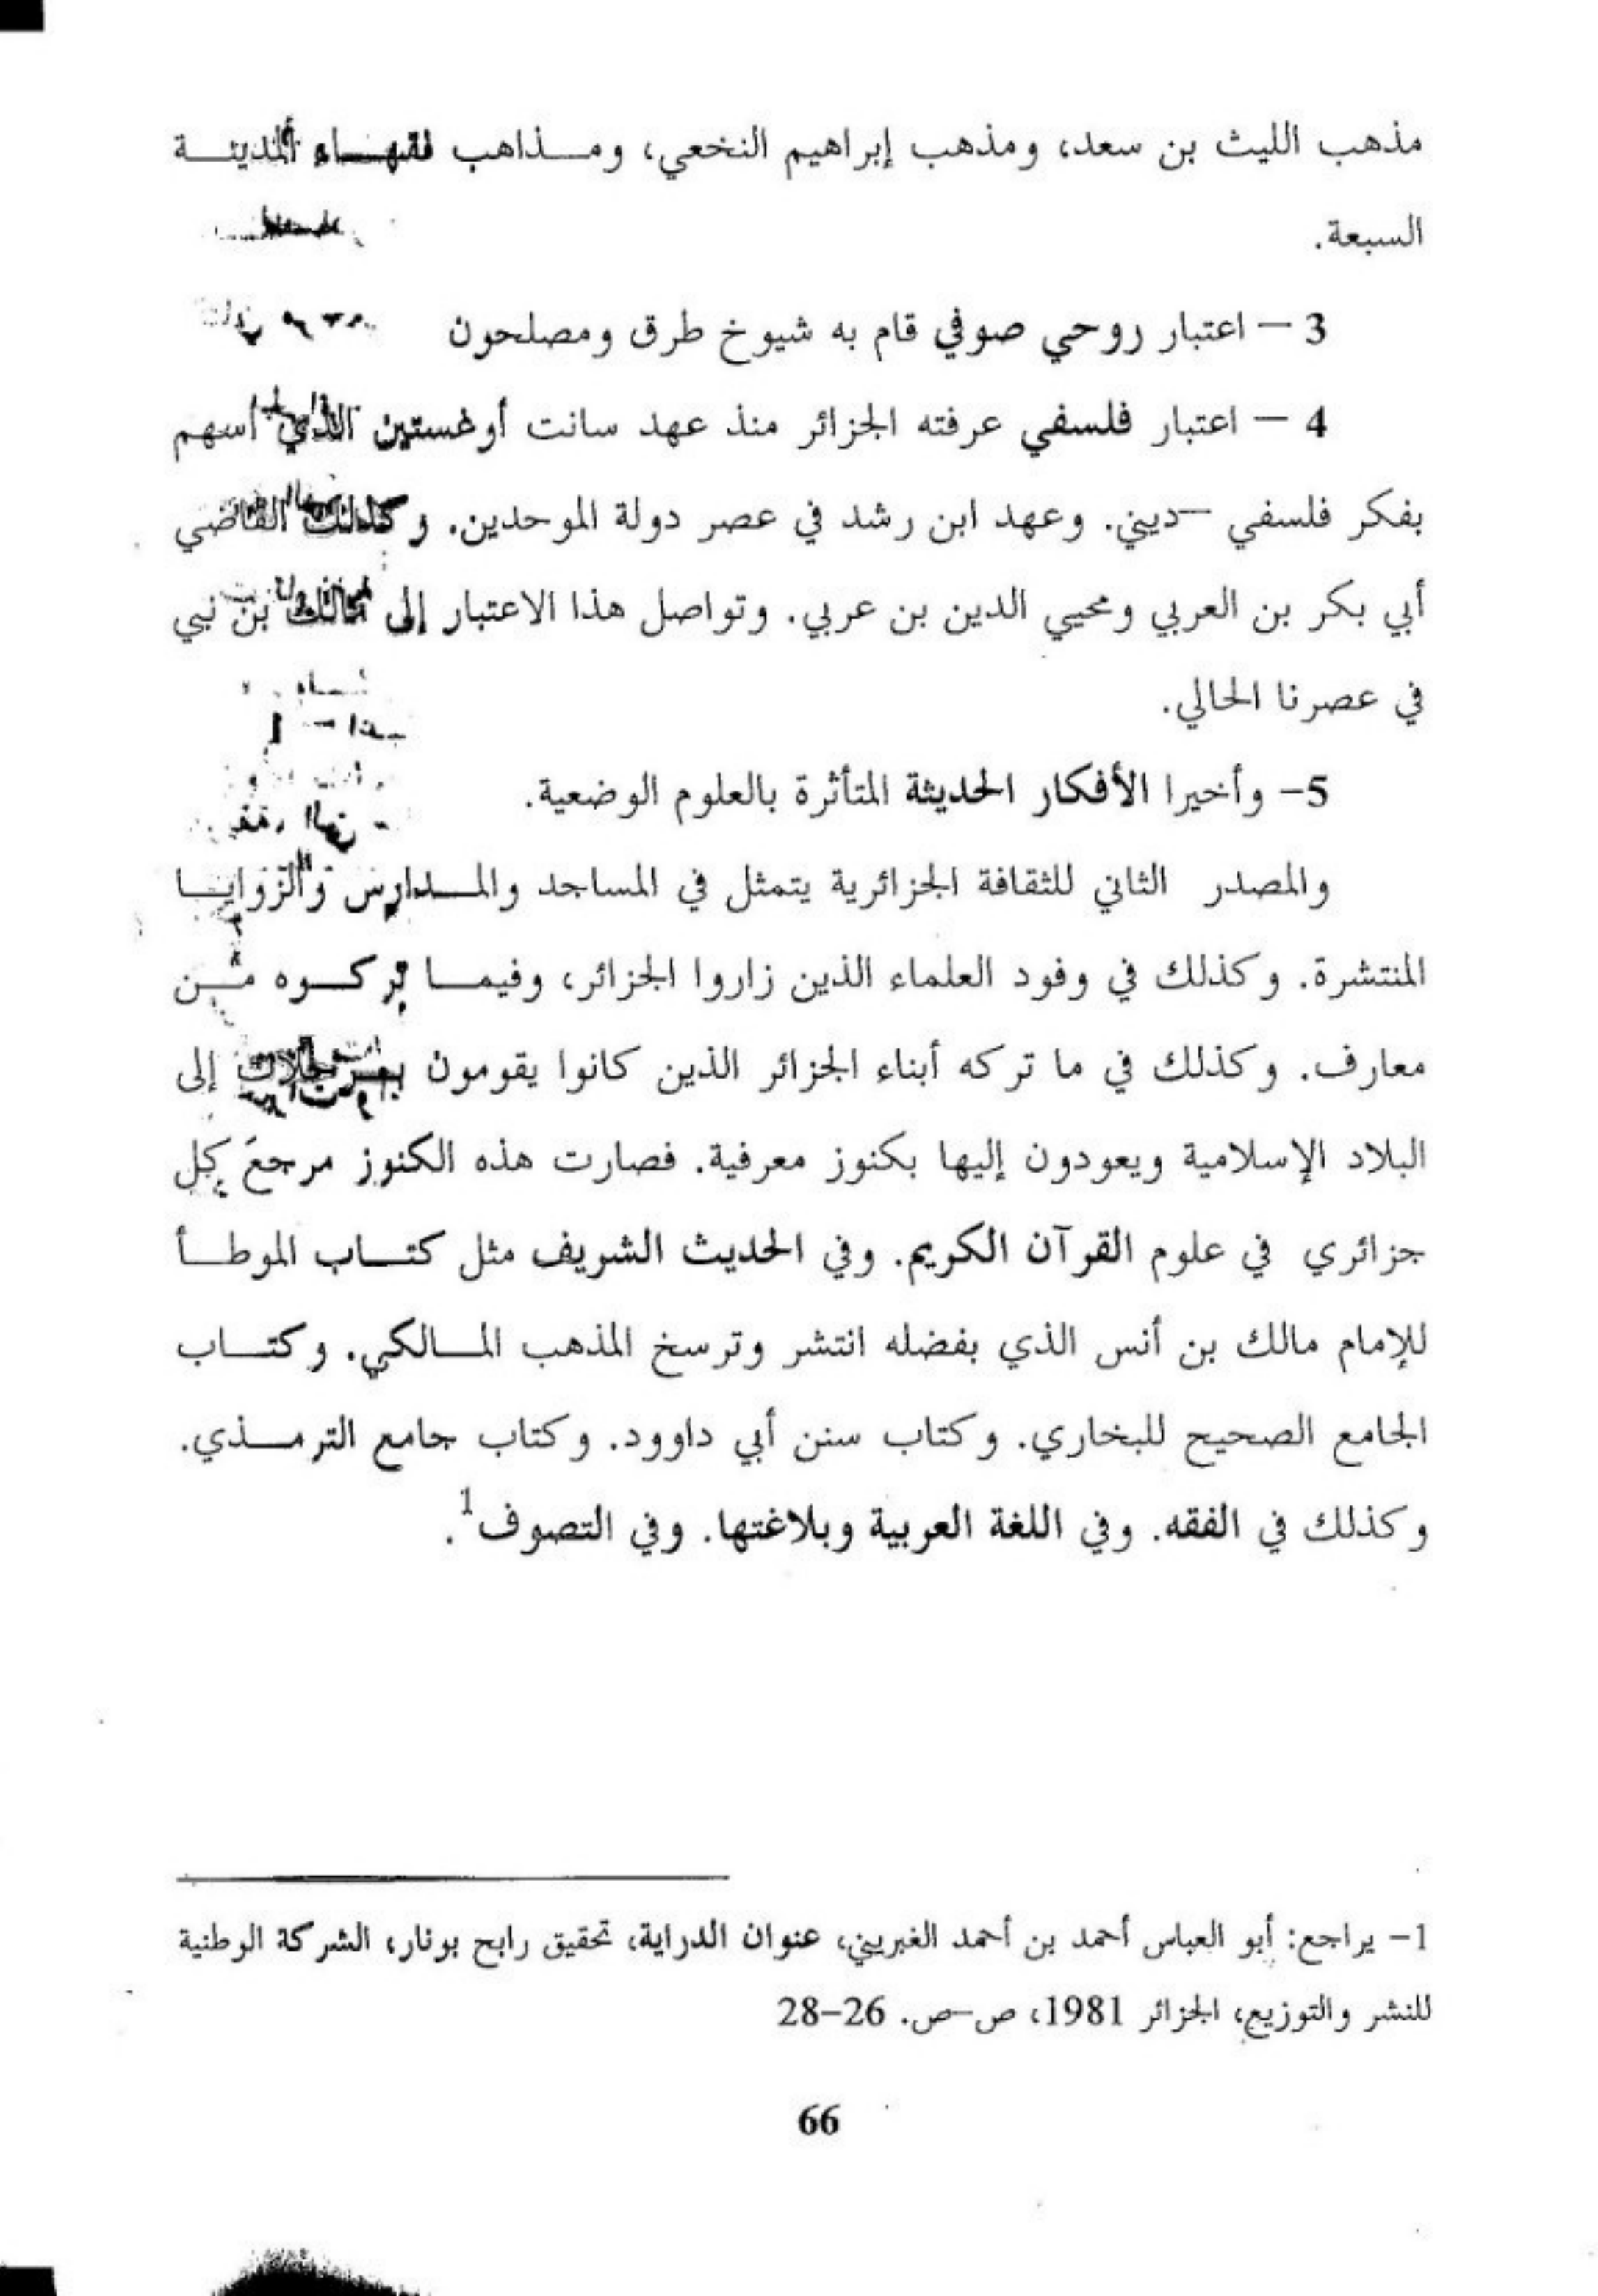 مذهب الليث بن سعد، ومذهب إبراهيم النخعي، ومذاهب فقهاء المدينة
السبعة.
3 – اعتبار روحي صوفي قام به شيوخ طرق ومصلحون
4 – اعتبار فلسفي عرفته الجزائر منذ عهد سانت أوغستين الذي أسهم
بفكر فلسفي –ديني. وعهد ابن رشد في عصر دولة الموحدين. وكذلك القاضي
أبي بكر بن العربي ومحيي الدين بن عربي. وتواصل هذا الاعتبار إلى مالك بن نبي
في عصرنا الحالي.
5– وأخيرا الأفكار الحديثة المتأثرة بالعلوم الوضعية.
والمصدر الثاني للثقافة الجزائرية يتمثل في المساجد والمدارس والزوايا
المنتشرة. وكذلك في وفود العلماء الذين زاروا الجزائر، وفيما تركوه من
معارف. وكذلك في ما تركه أبناء الجزائر الذين كانوا يقومون برحلات إلى
البلاد الإسلامية ويعودون إليها بكنوز معرفية. فصارت هذه الكنوز مرجعَ كل
جزائري في علوم القرآن الكريم. وفي الحديث الشريف مثل كتاب الموطأ
للإمام مالك بن أنس الذي بفضله انتشر وترسخ المذهب المالكي. وكتاب
الجامع الصحيح للبخاري. وكتاب سنن أبي داوود. وكتاب جامع الترمذي.
وكذلك في الفقه. وفي اللغة العربية وبلاغتها. وفي التصوف1.
1– يراجع: أبو العباس أحمد بن أحمد الغبريني، عنوان الدراية، تحقيق رابح بونار، الشركة الوطنية
للنشر والتوزيع، الجزائر 1981، ص–ص. 26–28
66